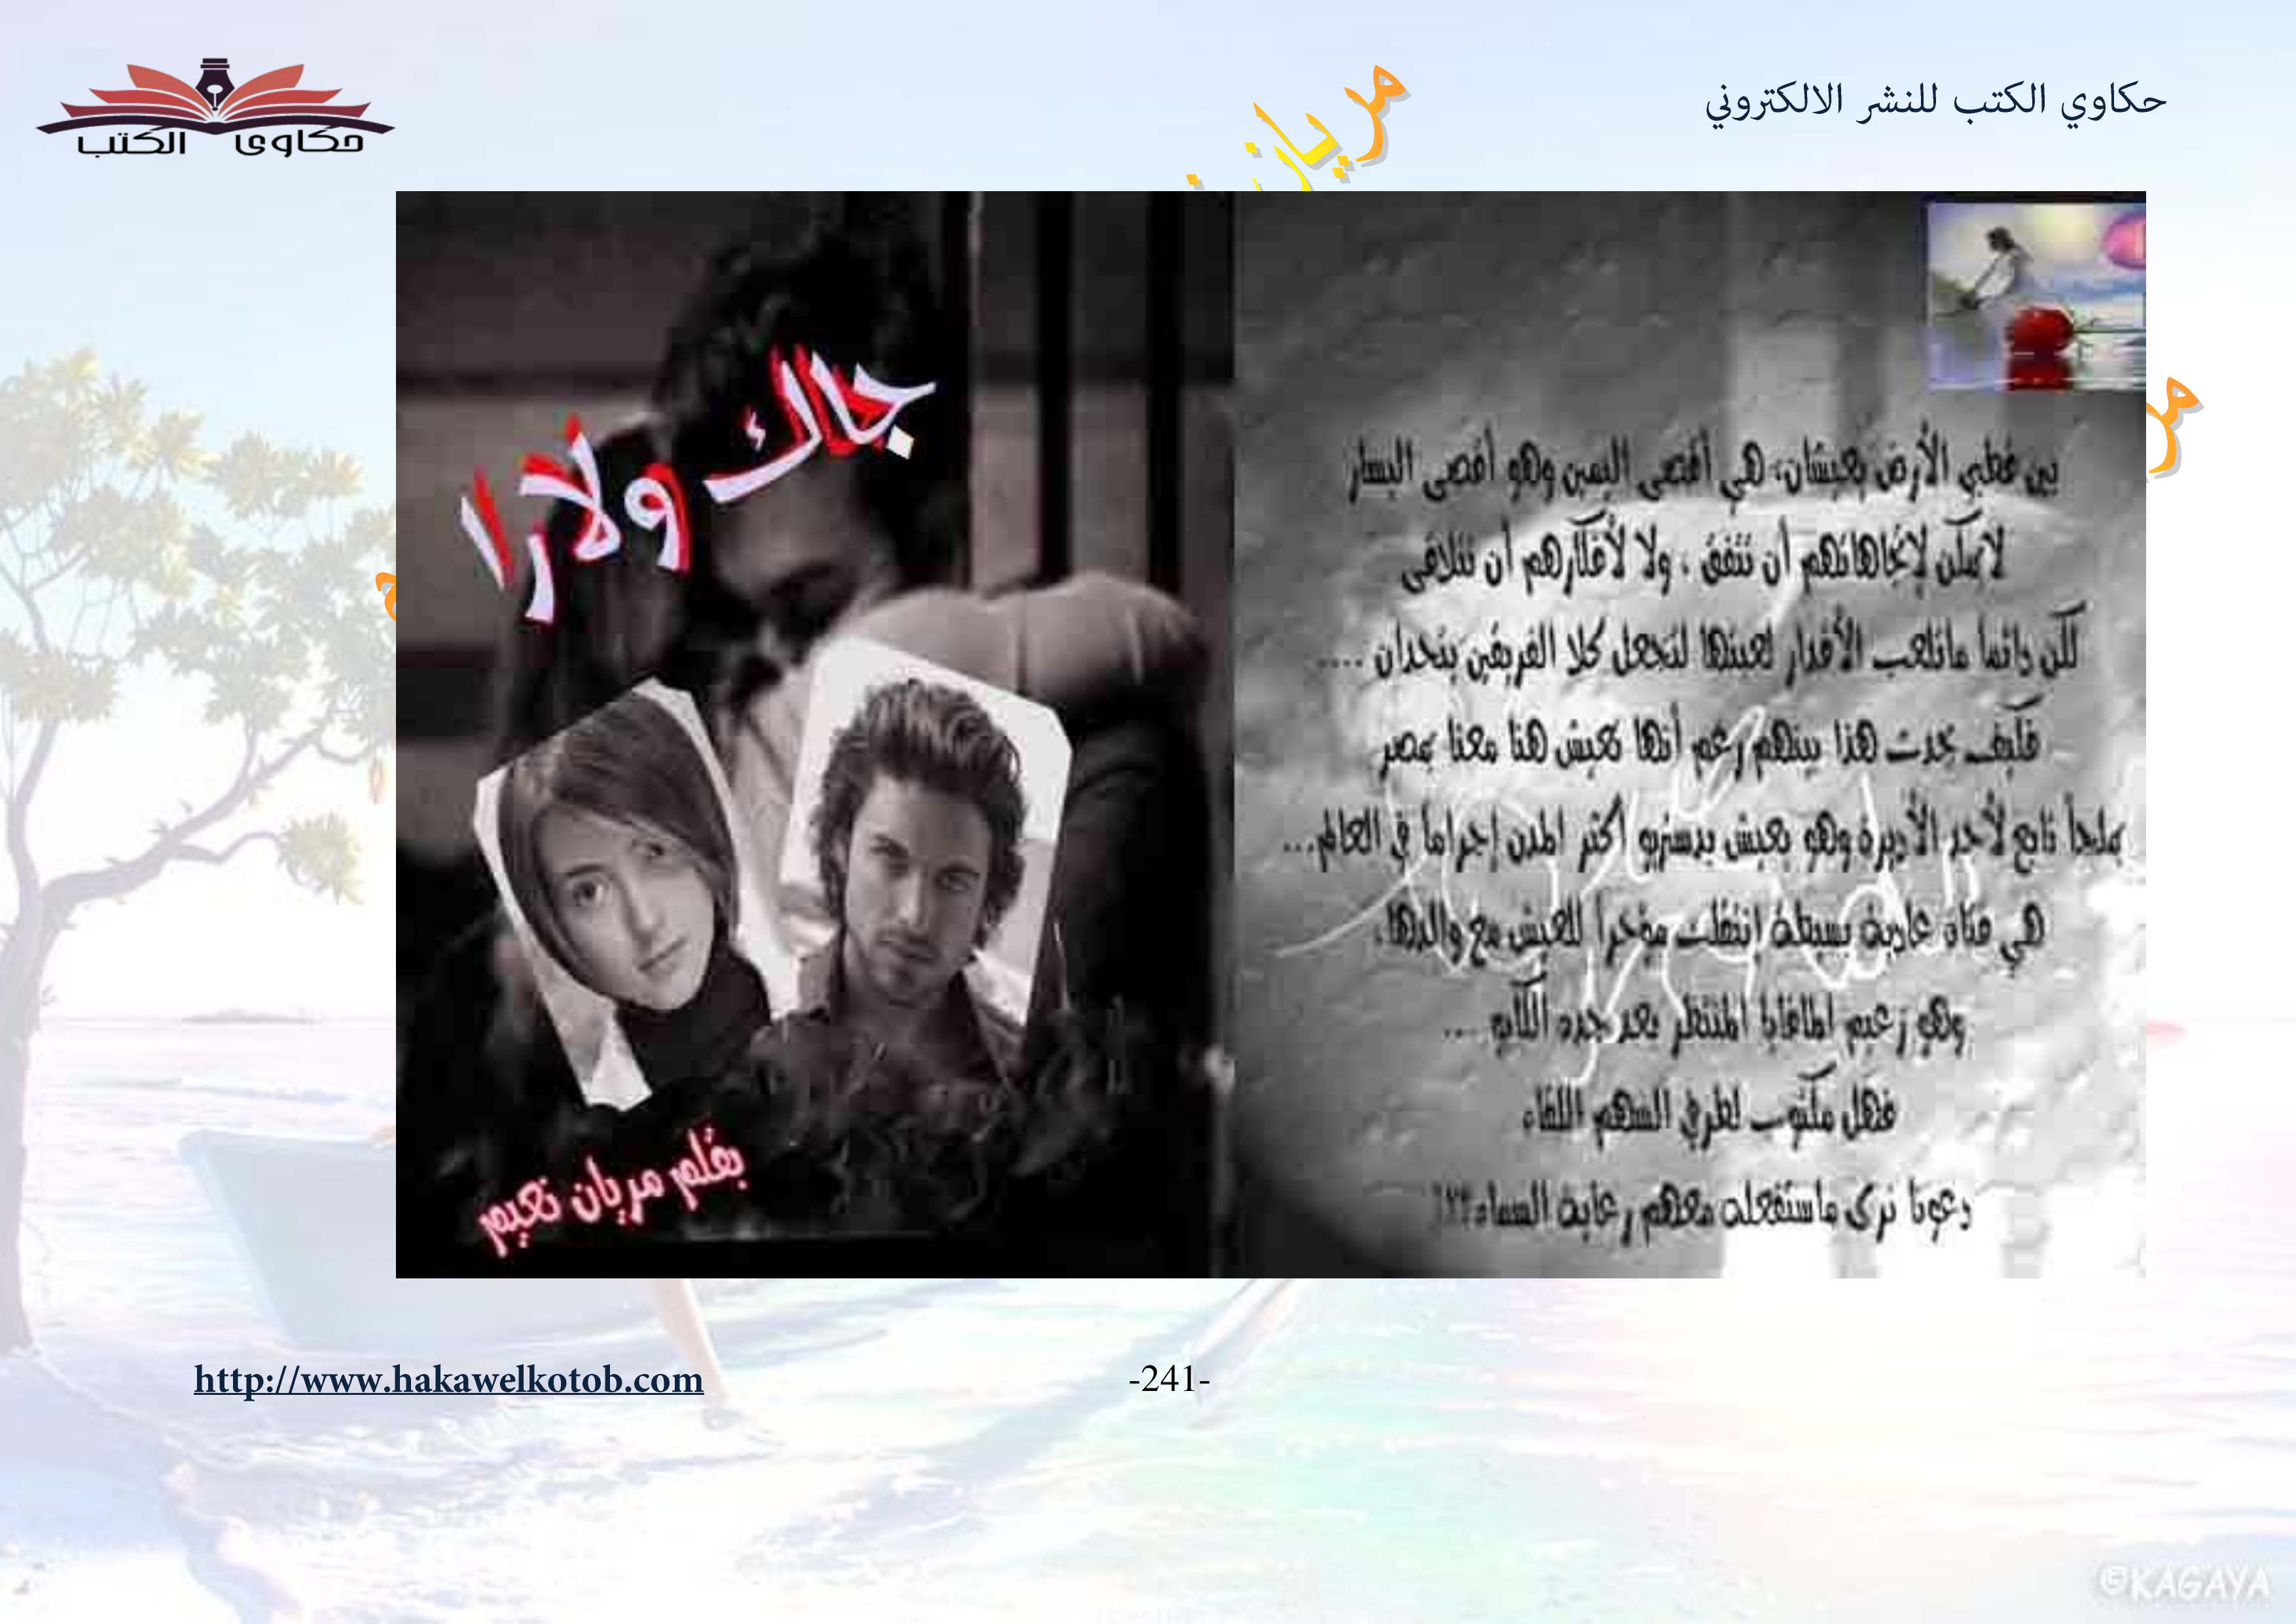 حكاوي الكتب للنشر الالكتروني
حكاوى الكتب
مريان
جاك ولارا
بقلم مريان نعيم
بين قطبي الأرض يعيشان، هي أقصى اليمين وهو أقصى اليسار
لايمكن لإتجاهاتهم أن تتفق ، ولا لأفكارهم أن تتلاقى
لكن دائما ماتلعب الأقدار لعبتها لتجعل كلا الفريقين يتحدان ....
فكيف يحدث هذا بينهم رغم أنها تعيش هنا معنا بمصر
بملجأ تابع لأحد الأديرة وهو يعيش أكثر المدن إجراماً في العالم...
هي فتاة عادية بسيطة انتقلت مؤخراً للعيش مع والدها،
وهو زعيم المافيا المنتظر بعد جده ....
فهل مكتوب لطرفي السهم اللقاء
دعونا نرى ماستفعله معهم رعاية السماء؟؟!
http://www.hakawelkotob.com
-241-
©KAGAYA